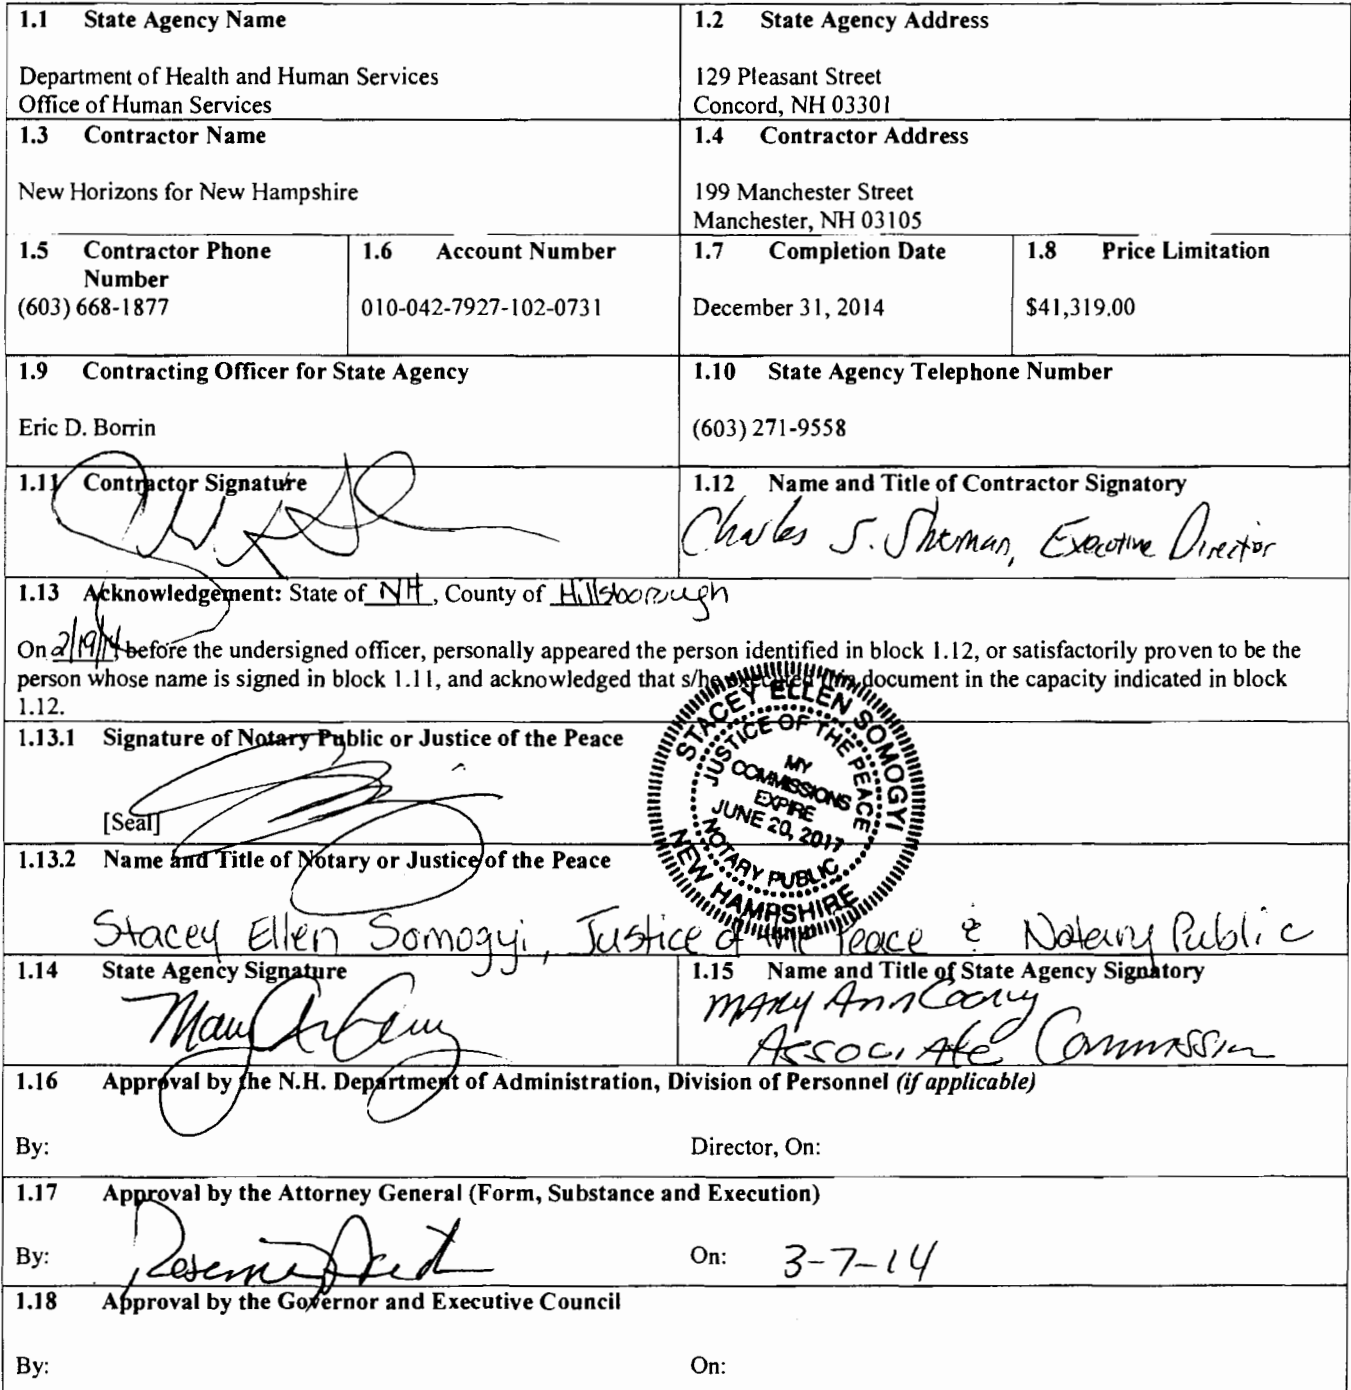 1.1 State Agency Name
Department of Health and Human Services
Office of Human Services
1.2 State Agency Address
129 Pleasant Street
Concord, NH 03301
1.3 Contractor Name
New Horizons for New Hampshire
1.4 Contractor Address
199 Manchester Street
Manchester, NH 03105
1.5 Contractor Phone
Number
(603) 668-1877
1.6 Account Number
010-042-7927-102-0731
1.7 Completion Date
December 31, 2014
1.8 Price Limitation
$41,319.00
1.9 Contracting Officer for State Agency
Eric D. Borrin
1.10 State Agency Telephone Number
(603) 271-9558
1.11 Contractor Signature
1.12 Name and Title of Contractor Signatory
Charles S. Sherman, Executive Director
1.13 Acknowledgement: State of NH, County of Hillsborough
On 2/19/14, before the undersigned officer, personally appeared the person identified in block 1.12, or satisfactorily proven to be the
person whose name is signed in block 1.11, and acknowledged that s/he executed this document in the capacity indicated in block
1.12.
1.13.1 Signature of Notary Public or Justice of the Peace
[Seal]
STACEY ELLEN SOMOGYI
JUSTICE OF THE PEACE
MY
COMMISSIONS
EXPIRE
JUNE 20, 2017
NOTARY PUBLIC
NEW HAMPSHIRE
1.13.2 Name and Title of Notary or Justice of the Peace
Stacey Ellen Somogyi, Justice of the Peace & Notary Public
1.14 State Agency Signature
1.15 Name and Title of State Agency Signatory
MARY ANN Cooney
Associate Commission
1.16 Approval by the N.H. Department of Administration, Division of Personnel (if applicable)
By:
Director, On:
1.17 Approval by the Attorney General (Form, Substance and Execution)
By:
On: 3-7-14
1.18 Approval by the Governor and Executive Council
By:
On: